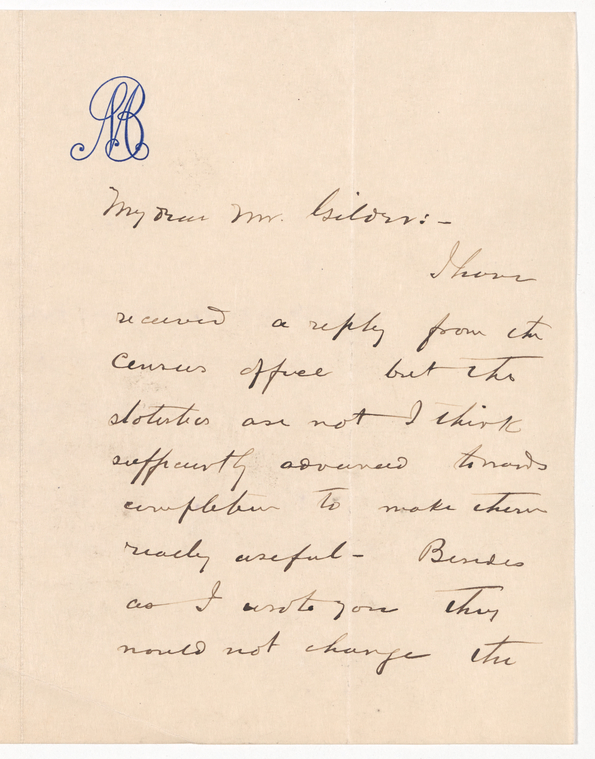 MB
My dear Mr. Gilder:-
I have
received a reply from the
census office but the
statistics are not I think
sufficiently advanced towards
completion to make them
really useful- Besides
as I wrote you they
would not change the